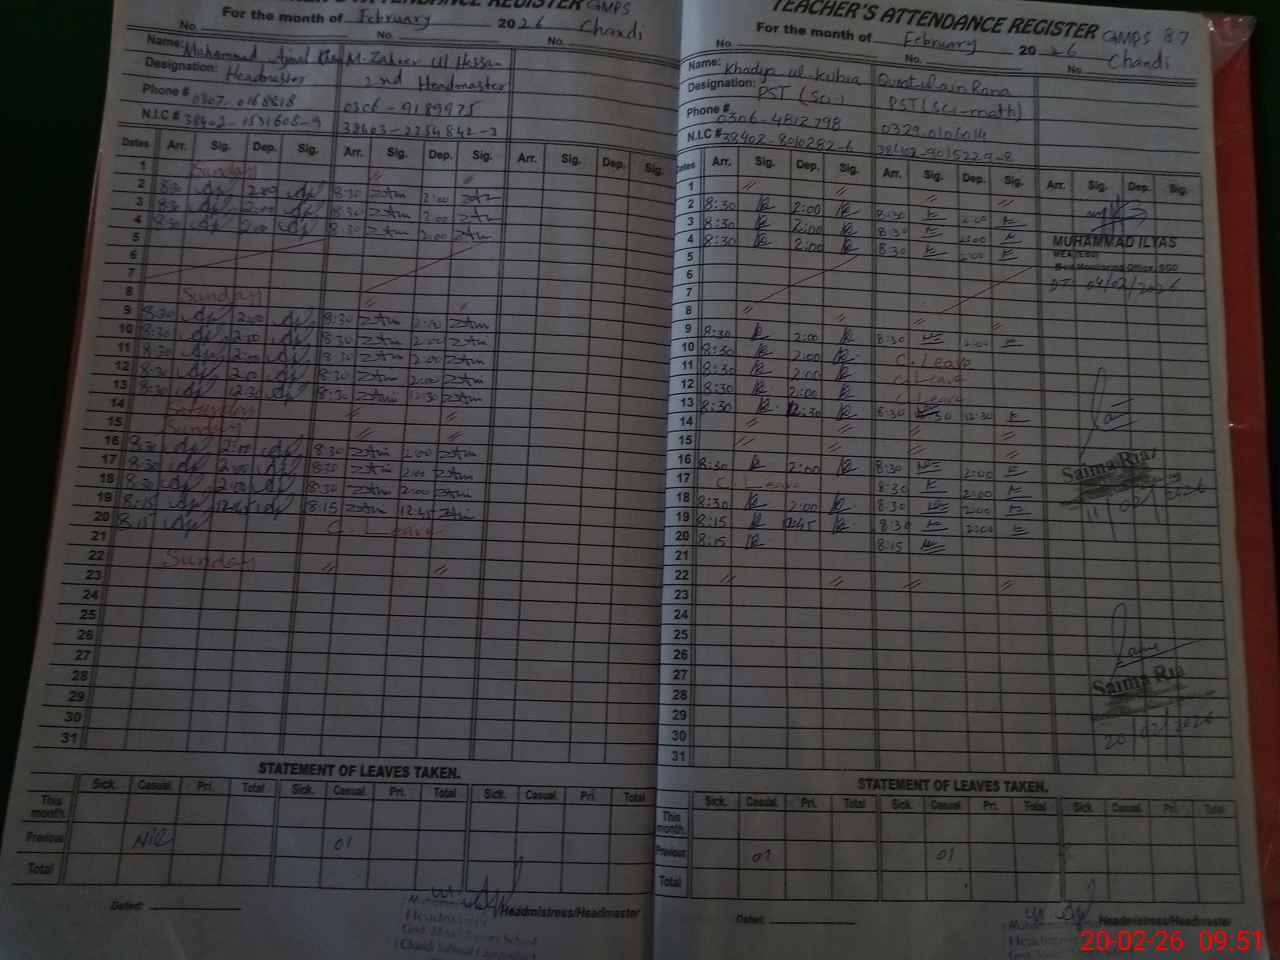 TEACHER'S ATTENDANCE REGISTER GMPS
For the month of February 2026 Chandi
No. No. No.
Name: Muhammad Ajmal Khan M. Zaheer Ul Hassan
Designation: Headmaster 2nd Headmaster
Phone # 0307-0168818 0306-9189975
N.I.C # 38402-1531608-9 38403-2254842-3
Dates Arr. Sig. Dep. Sig. Arr. Sig. Dep. Sig. Arr. Sig. Dep. Sig.
1 Sunday
2 8:30 2:00 8:30 2:00
3 8:30 2:00 8:30 2:00
4 8:30 2:00 8:30 2:00
5
6
7
8 Sunday
9 8:30 2:00 8:30 2:00
10 8:30 2:00 8:30 2:00
11 8:30 2:00 8:30 2:00
12 8:30 2:00 8:30 2:00
13 8:30 12:30 8:30 12:30
14 Saturday
15 Sunday
16 8:30 2:00 8:30 2:00
17 8:30 2:00 8:30 2:00
18 8:30 2:00 8:30 2:00
19 8:15 12:45 8:15 12:45
20 8:15 C. Leave
21
22 Sunday
23
24
25
26
27
28
29
30
31
STATEMENT OF LEAVES TAKEN.
Sick. Casual. Pri. Total Sick. Casual. Pri. Total Sick. Casual. Pri. Total
This month.
Previous Nil 01
Total
Dated: Headmistress/Headmaster
Headmaster
TEACHER'S ATTENDANCE REGISTER GMPS 87
For the month of February 2026 Chandi
No. No. No.
Name: Khadija ul Kubra Quratulain Rana
Designation: PST (Sci) PST (Sci-math)
Phone # 0306-4812798 0329-0106014
N.I.C # 38402-8010282-6 38402-9015229-8
Dates Arr. Sig. Dep. Sig. Arr. Sig. Dep. Sig. Arr. Sig. Dep. Sig.
1
2 8:30 2:00 8:30 2:00
3 8:30 2:00 8:30 2:00
4 8:30 2:00 8:30 2:00
MUHAMMAD ILYAS
DT: 04/02/2026
5
6
7
8
9 8:30 2:00 8:30 2:00
10 8:30 2:00 C. Leave
11 8:30 2:00 C. Leave
12 8:30 2:00 C. Leave
13 8:30 12:30 8:30 12:30
14
15
16 8:30 2:00 8:30 2:00
Saima Riaz
17 C. Leave 8:30 2:00
11/02/2026
18 8:30 2:00 8:30 2:00
19 8:15 12:45 8:30 2:00
20 8:15 8:15
21
22
23
24
25
26
27
28
Saima Ria
29
30
20/02/2026
31
STATEMENT OF LEAVES TAKEN.
Sick. Casual. Pri. Total Sick. Casual. Pri. Total Sick. Casual. Pri. Total
This month.
Previous 01 01
Total
Dated: Headmistress/Headmaster
20-02-26 09:51